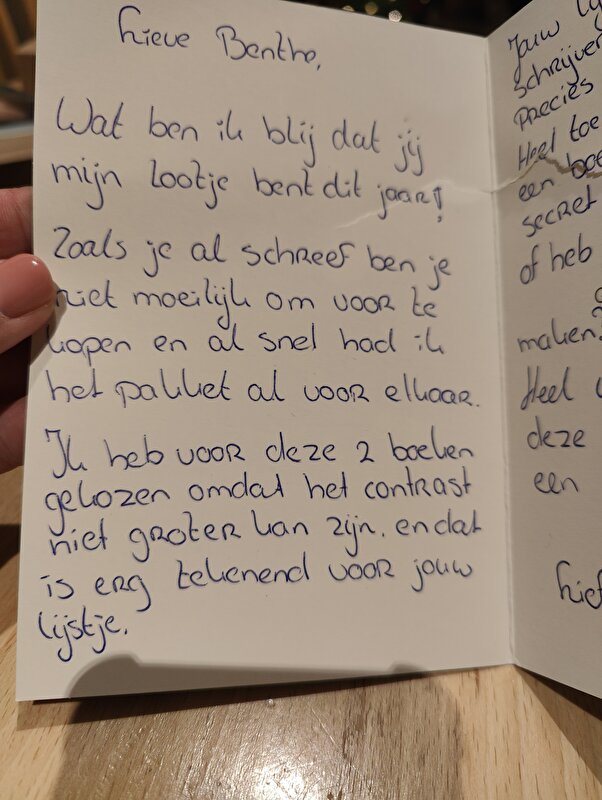 Lieve Benthe,
Wat ben ik blij dat jij
mijn lootje bent dit jaar!
Zoals je al schreef ben je
niet moeilijk om voor te
kopen en al snel had ik
het pakket al voor elkaar.
Ik heb voor deze 2 boeken
gekozen omdat het contrast
niet groter kan zijn. en dat
is erg tekenend voor jouw
lijstje.
Jouw
schrijven
precies
Heel toe
een boe
secret
of heb
maken.
Heel
deze
een
Lief